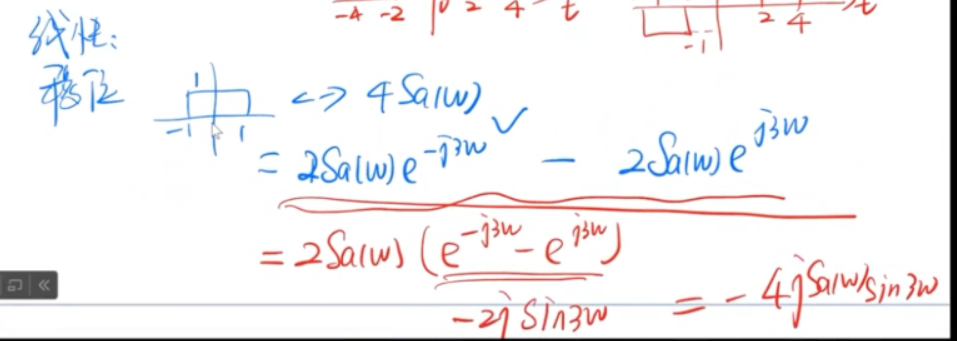 -4 -2 0 2 4 t
-1 2 4 t
线性:
移位 1 -1 1 <-> 4Sa(w)
= 2Sa(w)e^{-j3w} ✓ - 2Sa(w)e^{j3w}
= 2Sa(w) (e^{-j3w} - e^{j3w})
-2j sin3w = -4j Sa(w) sin3w